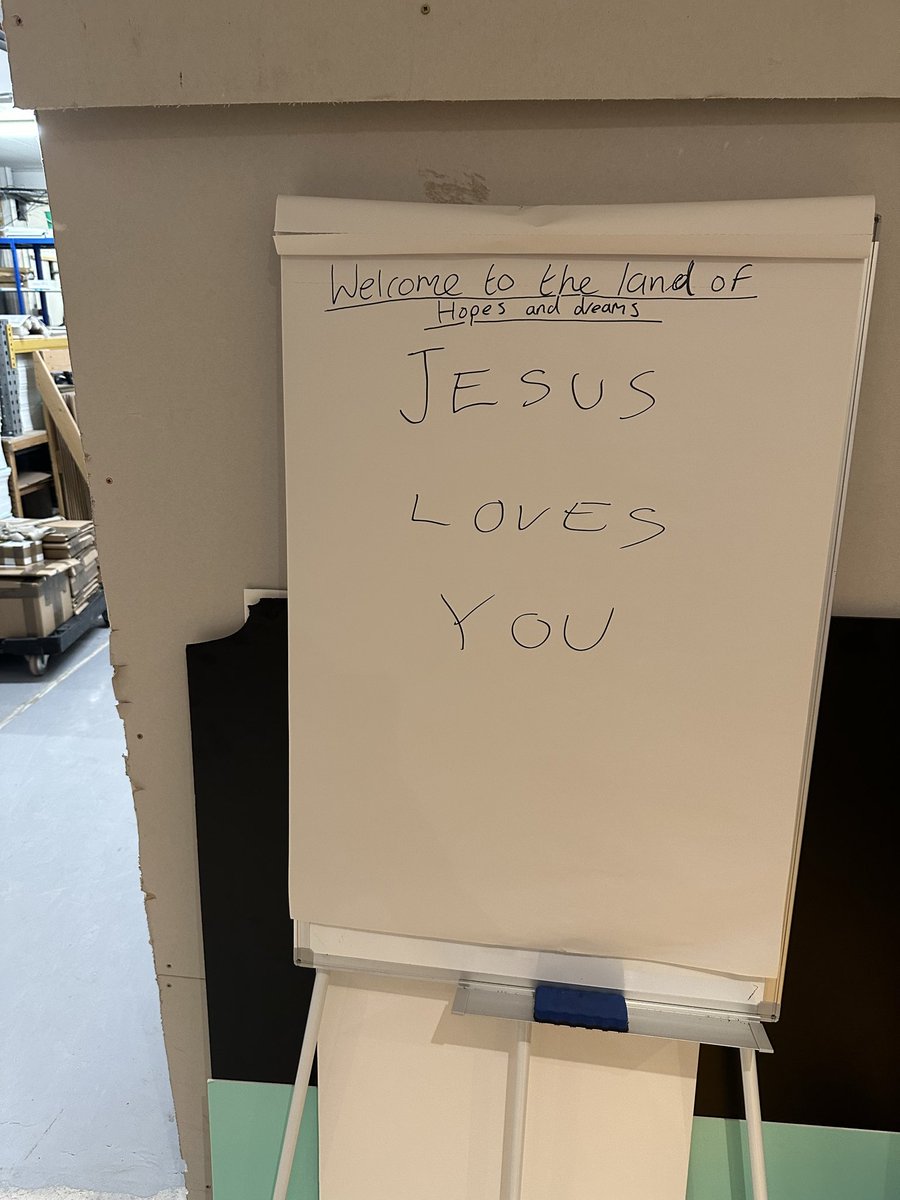 Welcome to the land of
Hopes and dreams
JESUS
LOVES
YOU